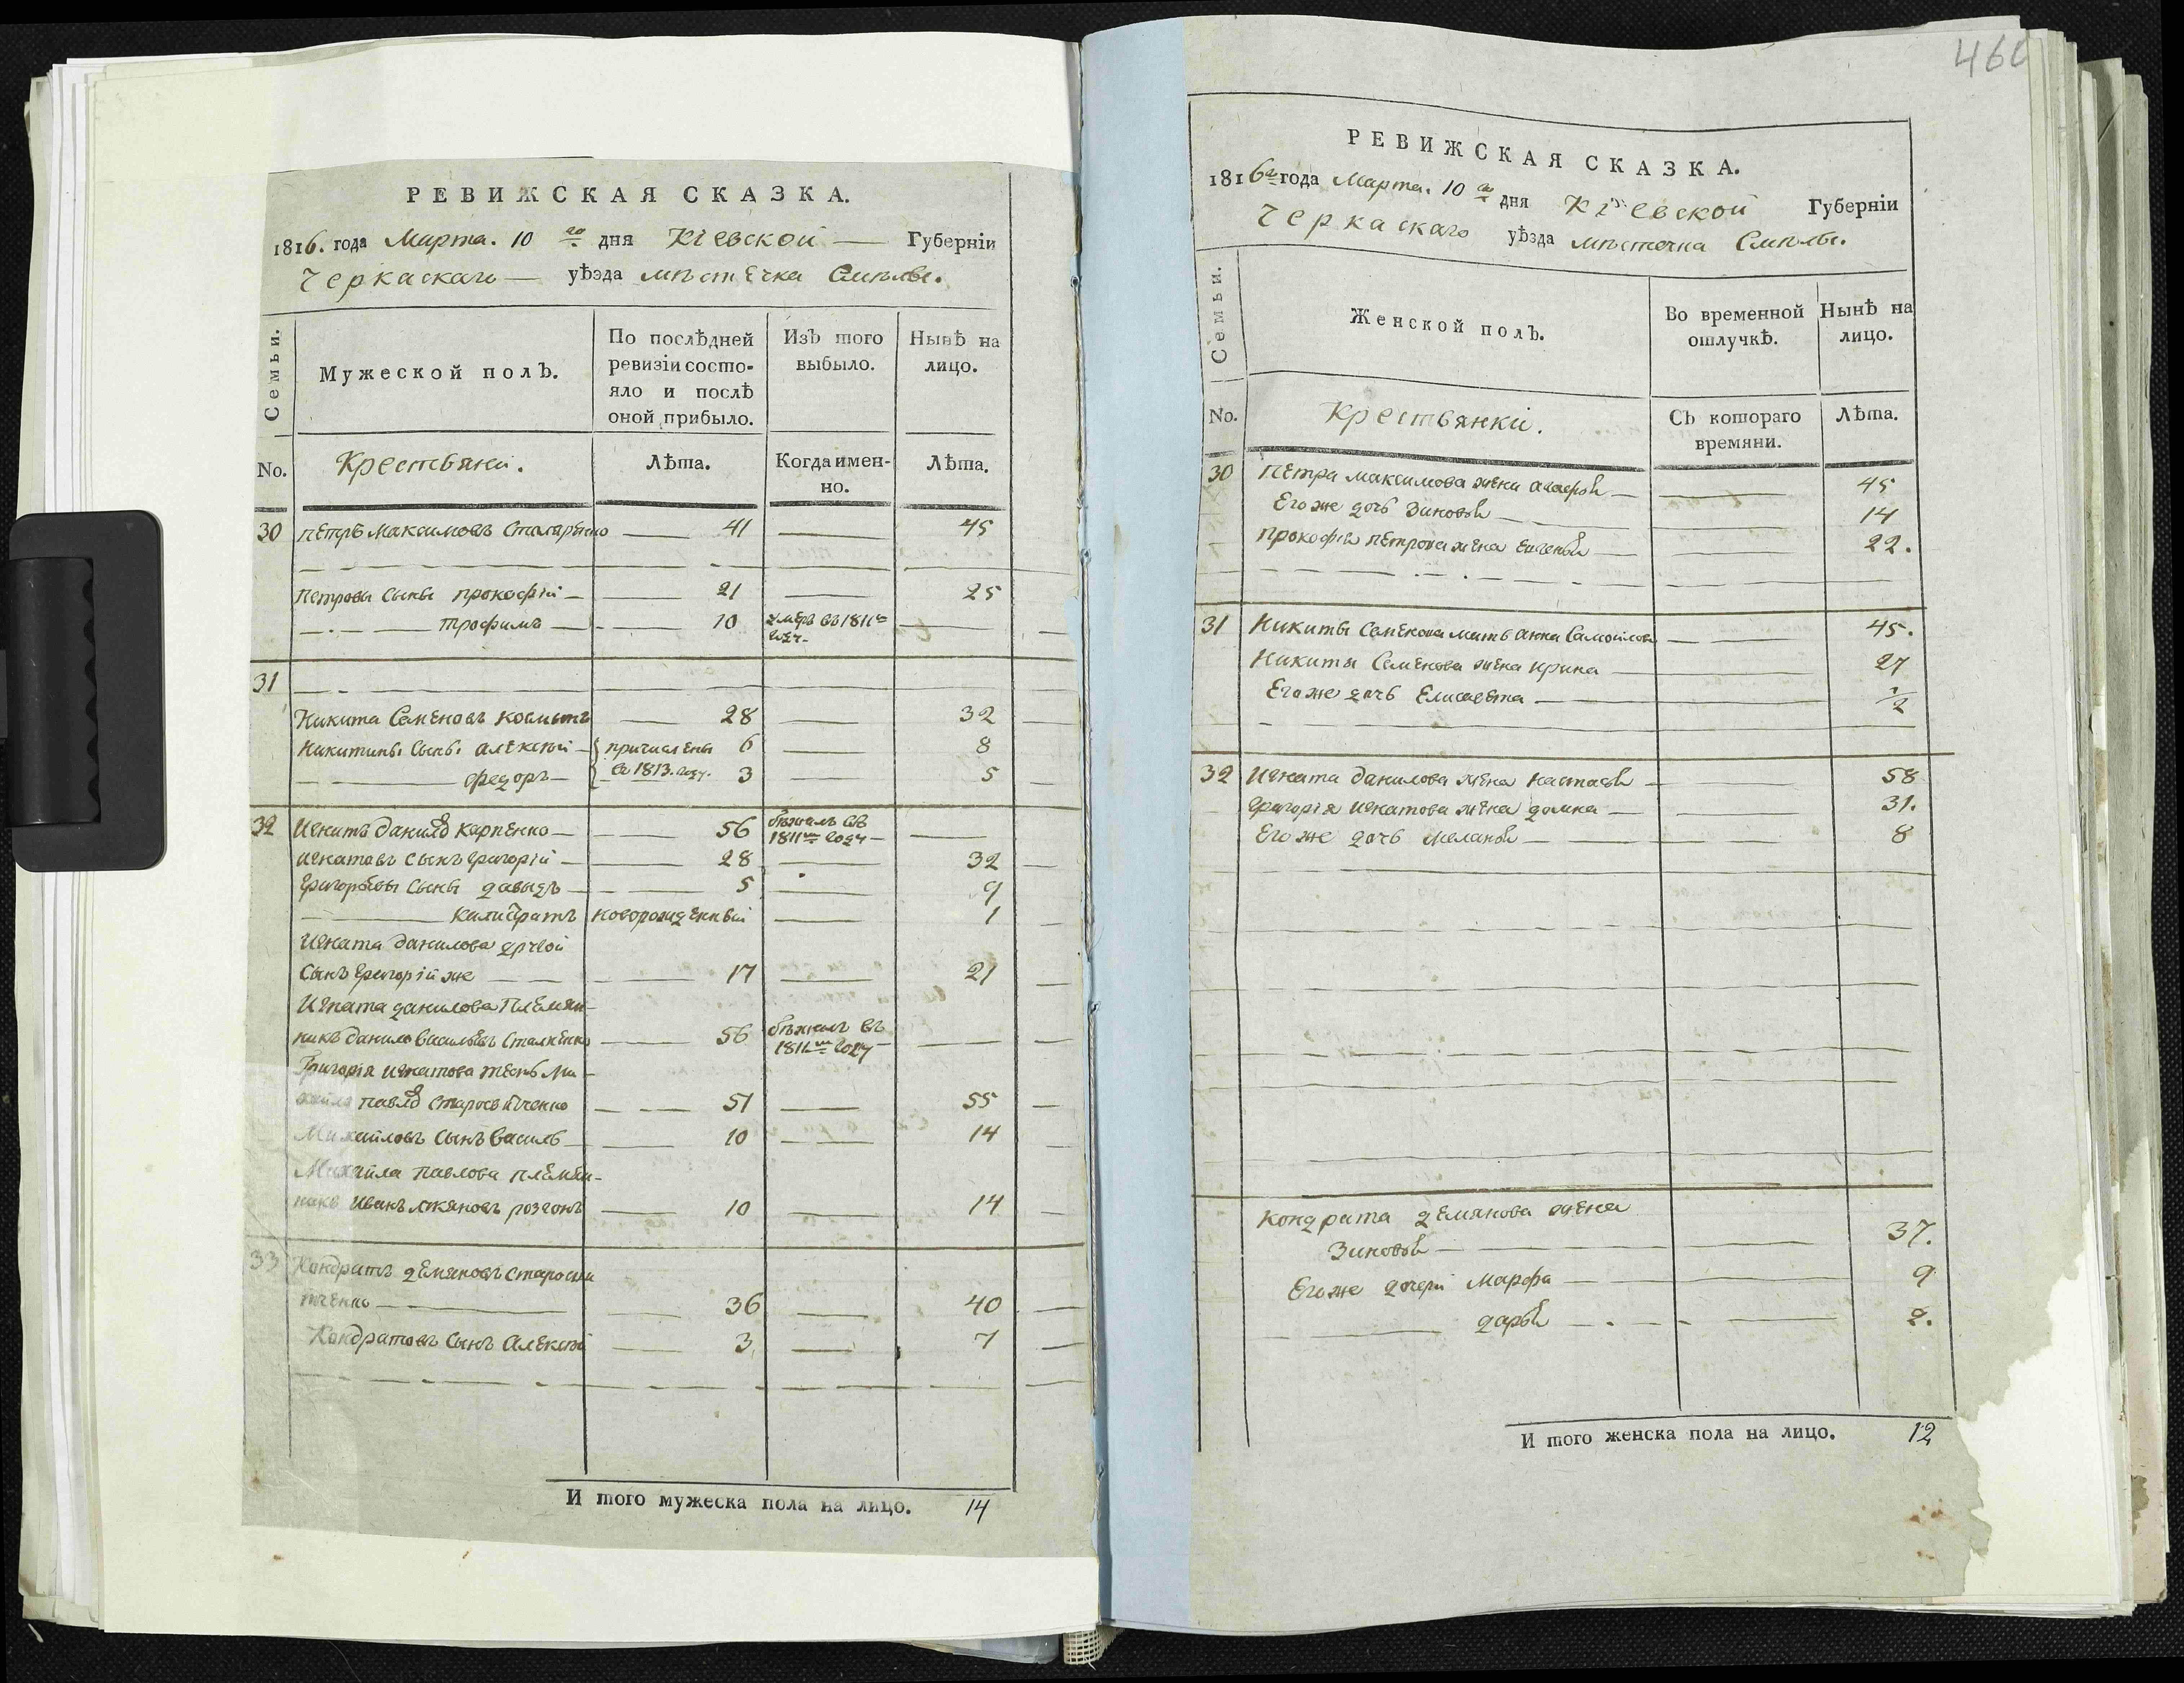 РЕВИЖСКАЯ СКАЗКА.
1816. года Марта. 10 го дня Кіевской Губерніи
Черкаскаго уѣзда мѣстечка Смѣлы.
Семьи.
Мужеской полъ.
По послѣдней ревизіи состо-
яло и послѣ
оной прибыло.
Изъ того выбыло.
Нынѣ на лицо.
No.
Крестьяни.
Лѣта.
Когда имен-
но.
Лѣта.
30 Петръ Максимовъ 41 45
Петровы сыны прокофій 21 25
Трофимъ 10 умеръ въ 1811м
году
31
Никита Семеновъ 28 32
Никитины сыны алексѣй причислены 6 8
федоръ въ 1813. году. 3 5
32 Игнатъ данилов Карпенко 56 бѣжалъ въ
1811м году
Игнатовъ сынъ григорій 28 32
Григорьевы сыны давыдъ 5 9
Калистратъ новорожденный 1
Игната данилова другой
сынъ григорій же 17 21
Игната данилова Племян-
никъ данило васильевъ 56 бѣжалъ въ
1811м году
Григорія игнатова тесть Ми-
хайла павлов 51 55
Михайловъ сынъ василь 10 14
Михайла павлова племян-
никъ Иванъ розгонъ 10 14
33 Кондратъ демяновъ
36 40
Кондратовъ сынъ алексѣй 3 7
И того мужеска пола на лицо. 14
466
РЕВИЖСКАЯ СКАЗКА.
1816го года Марта. 10 го дня Кіевской Губерніи
Черкаскаго уѣзда мѣстечка Смѣлы.
Семьи.
Женской полъ.
Во временной
отлучкѣ.
Нынѣ на
лицо.
No.
Крестьянки.
Съ котораго
времяни.
Лѣта.
30 Петра максимова жена агафья 45
Его же дочь Зиновья 14
Прокофія петрова жена Евгенья 22.
31 Никиты Семенова мать анна Самойлова 45.
Никиты Семенова жена ирина 27
Его же дочь Елисавета 1/2
32 Игната данилова жена настасья 58
Григорія игнатова жена домна 31.
Его же дочь меланья 8
Кондрата демянова жена
Зиновья 37.
Его же дочери Марфа 9
дарья 2.
И того женска пола на лицо. 12